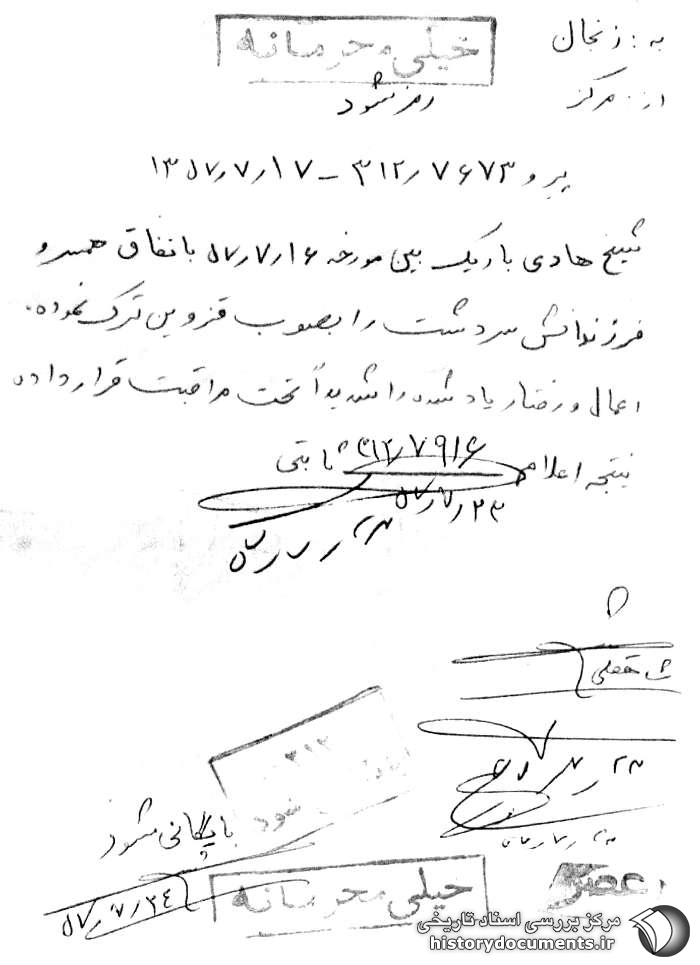 خیلی محرمانه
به: زنجان
از: مرکز
رمز شود
پیرو ۳۱۲٫۷۶۷۳ – ۱۳۵۷٫۷٫۱۷
شیخ هادی باریک بین مورخه ۵۷٫۷٫۱۶ باتفاق همسر و
فرزندانش سردشت را بصوب قزوین ترک نموده.
اعمال و رفتار یاد شده را شدیداً تحت مراقبت قرار داده
نتیجه اعلام ثابتی
۳۱۲٫۷۹۱۶
۵۷٫۷٫۲۳
۳۱۲
شود
بایگانی شود
۵۷٫۷٫۲۴
خیلی محرمانه
مرکز بررسی اسناد تاریخی
historydocuments.ir